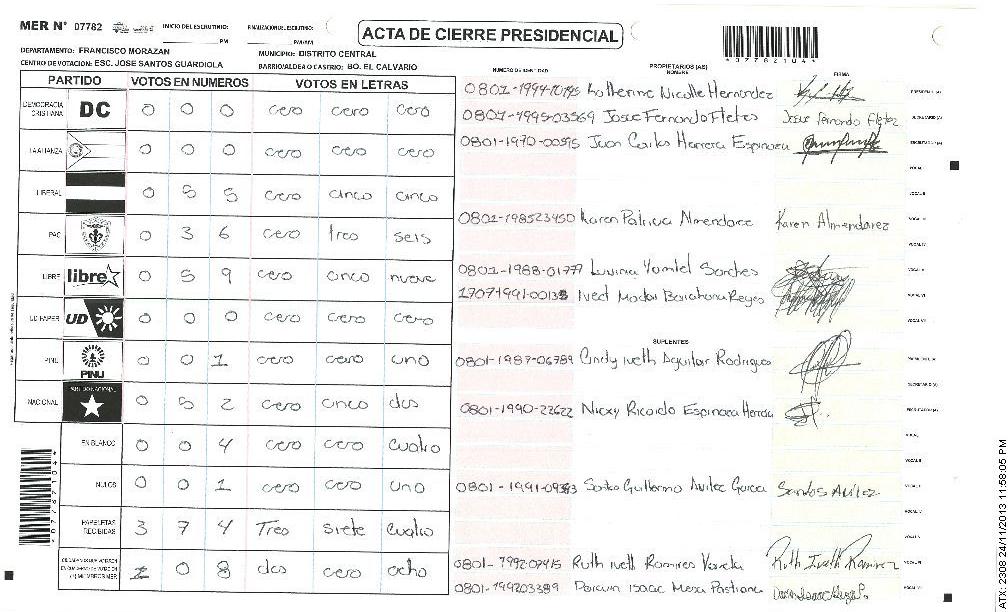 MER N° 07782 INICIO DEL ESCRUTINIO: PM FINALIZACION DEL ESCRUTINIO: PM/AM
ACTA DE CIERRE PRESIDENCIAL
*07782104*
DEPARTAMENTO: FRANCISCO MORAZAN MUNICIPIO: DISTRITO CENTRAL
CENTRO DE VOTACION: ESC. JOSE SANTOS GUARDIOLA BARRIO/ALDEA O CASTRIO: BO. EL CALVARIO
NUMERO DE IDENTIDAD PROPIETARIOS (AS) NOMBRE FIRMA
PARTIDO VOTOS EN NUMEROS VOTOS EN LETRAS
DEMOCRACIA CRISTIANA DC 0 0 0 cero cero cero
LA ALIANZA 0 0 0 cero cero cero
LIBERAL 0 5 5 cero cinco cinco
PAC 0 3 6 cero tres seis
LIBRE libre 0 5 9 cero cinco nueve
UD FAPER UD 0 0 0 cero cero cero
PINU PINU 0 0 1 cero cero uno
NACIONAL PARTIDO NACIONAL 0 5 2 cero cinco dos
EN BLANCO 0 0 4 cero cero cuatro
NULOS 0 0 1 cero cero uno
PAPELETAS RECIBIDAS 3 7 4 Tres siete cuatro
0 8 dos cero ocho
Katherine Nicolle Hernandez PRESIDENTE (A)
0801-1995-03569 Josue Fernando Fletes Josue Fernando Fletes SECRETARIO (A)
0801-1970-00595 Juan Carlos Herrera Espinoza ESCRUTADOR (A)
VOCAL I
VOCAL II
0801-198523450 Karen Patricia Almendarez Karen Almendarez VOCAL III
VOCAL IV
0801-1988-01777 VOCAL V
Barahona Reyes VOCAL VI
VOCAL VII
SUPLENTES
0801-1987-06789 Cindy Iveth Aguilar Rodriguez
SECRETARIO (A)
0801-1990-22622 Nicxy Ricardo Espinoza Herrera ESCRUTADOR (A)
VOCAL I
Santos Guillermo Avilez Garcia Santos Avilez VOCAL II
Ruth Iveth Ramirez Varela Ruth Iveth Ramirez
0801-199203389 Isaac Meza Pastrana
*07782104*
ATX: 2308 24/11/2013 11:58:05 PM